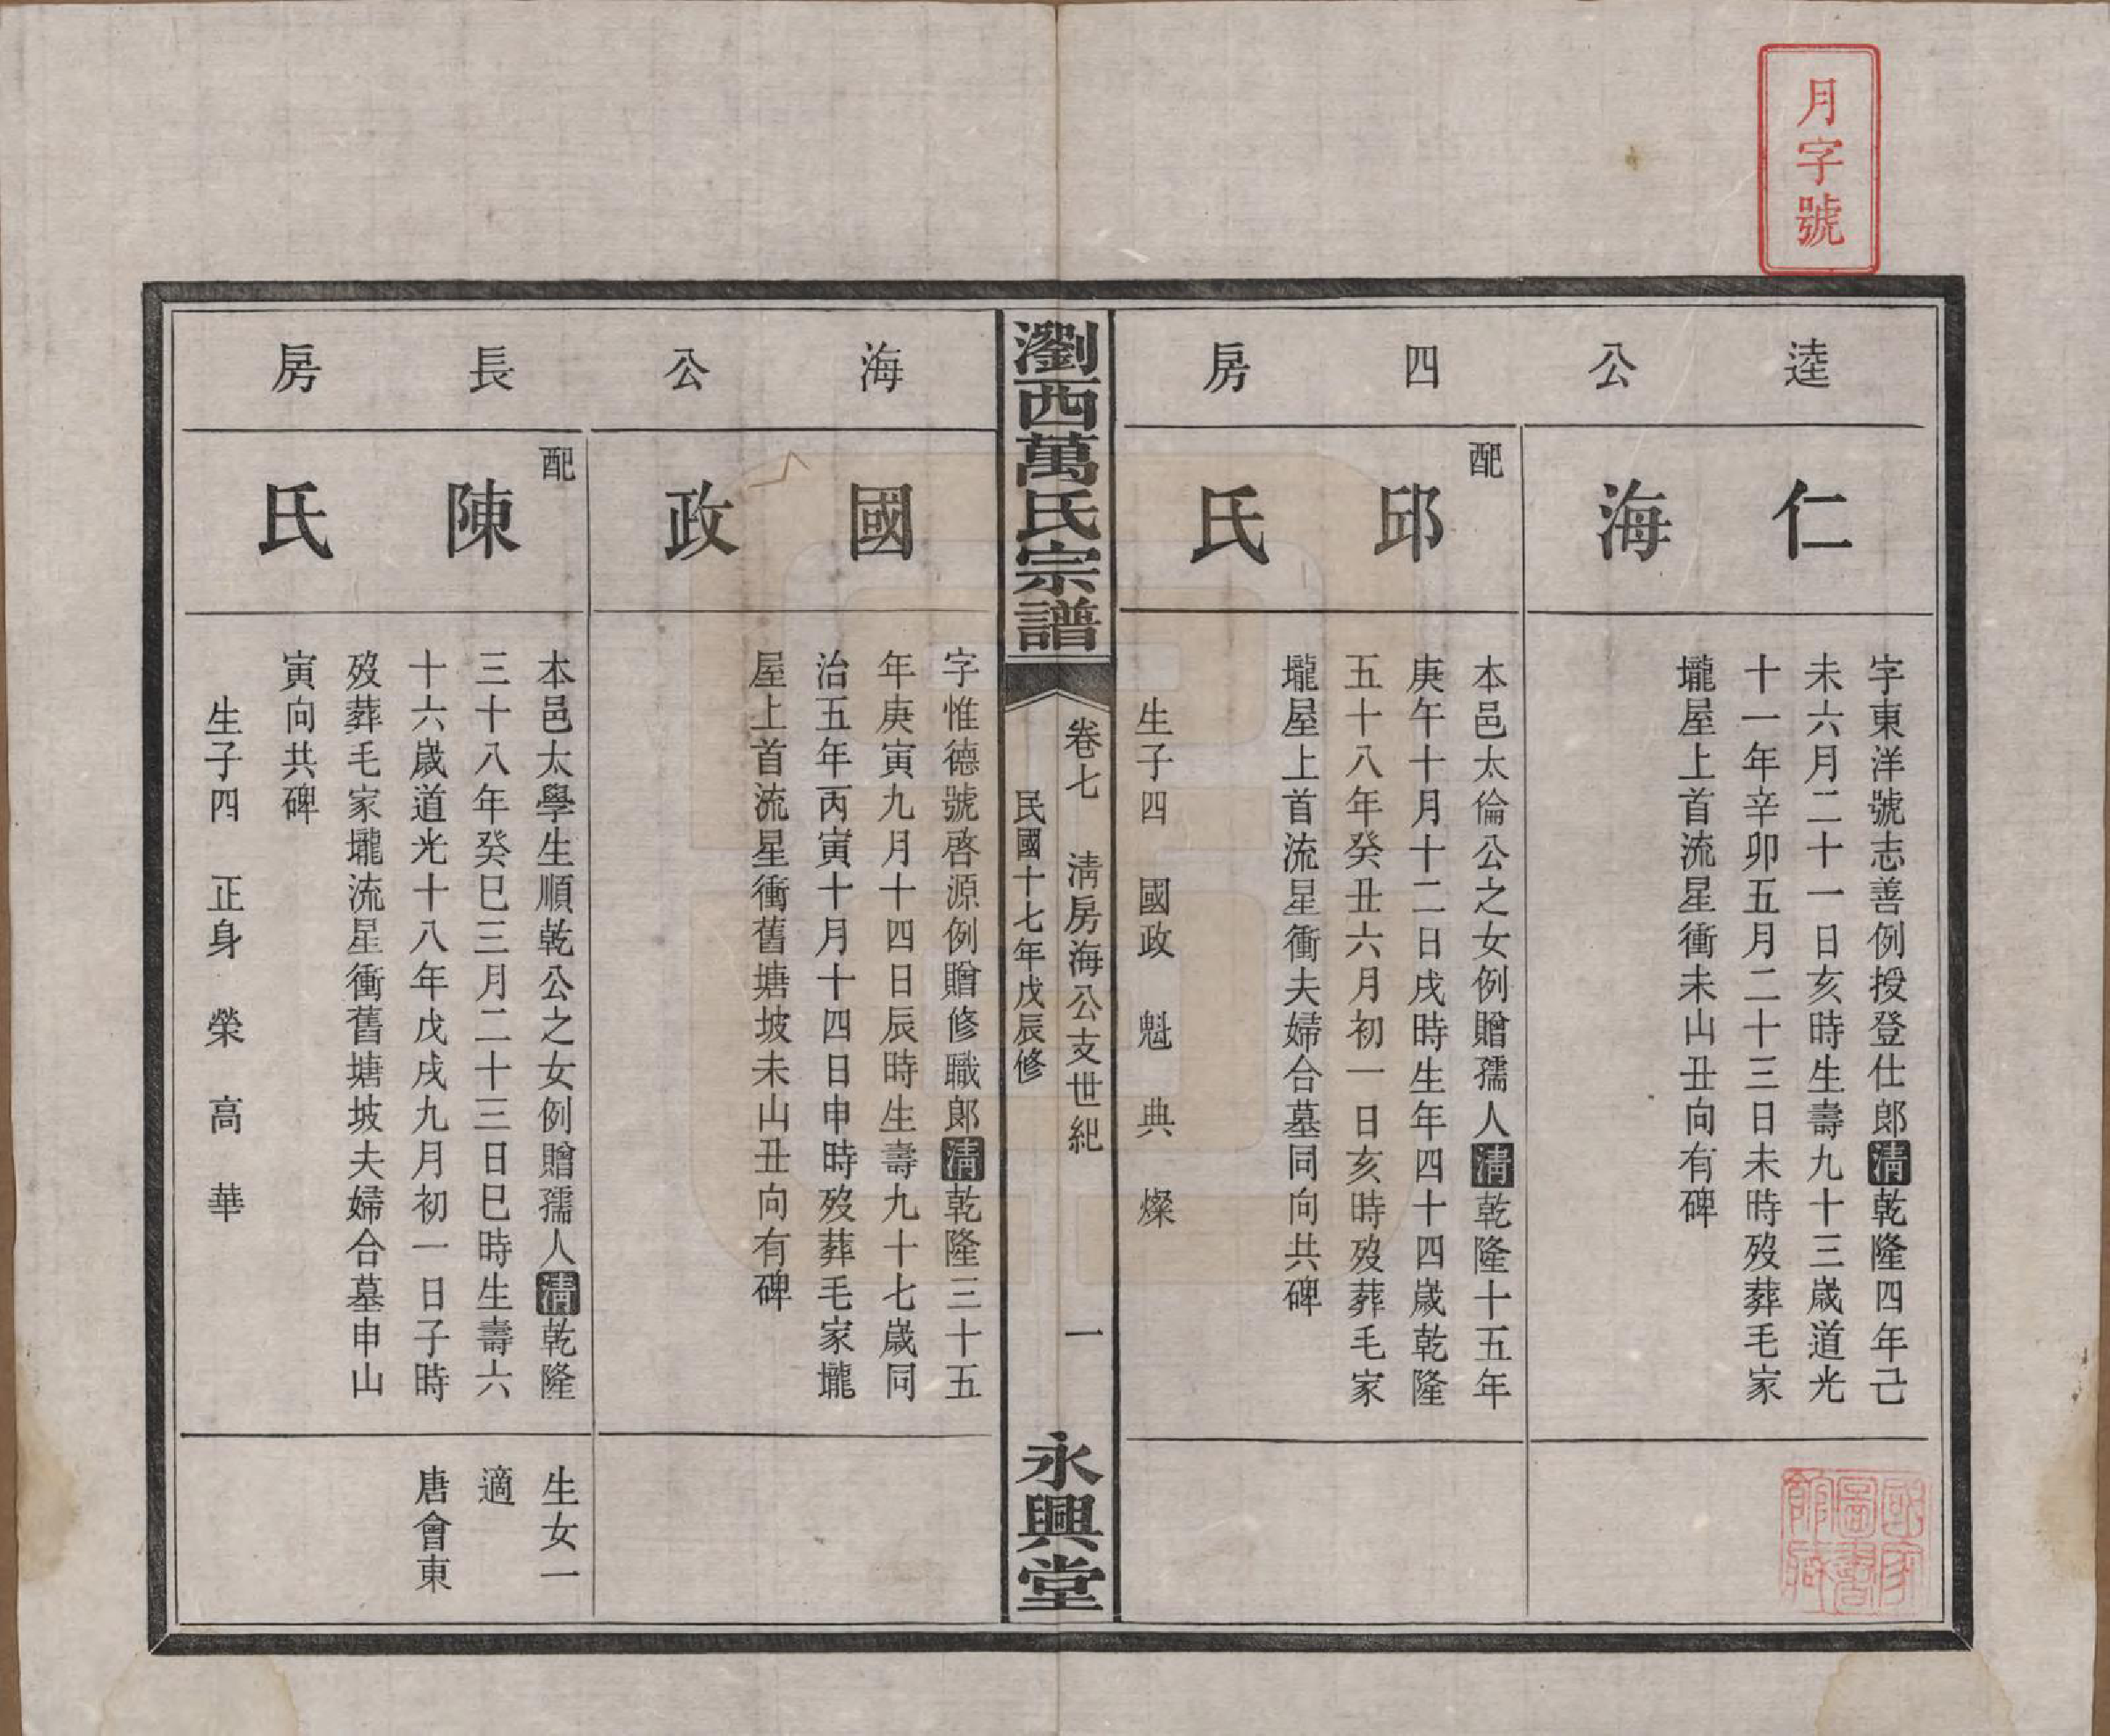 月字號
逵公四房
仁海
字東洋號志善例授登仕郎清乾隆四年己
未六月二十一日亥時生壽九十三歲道光
十一年辛卯五月二十三日未時歿葬毛家
壠屋上首流星衝未山丑向有碑
配
邱氏
本邑太倫公之女例贈孺人清乾隆十五年
庚午十月十二日戌時生年四十四歲乾隆
五十八年癸丑六月初一日亥時歿葬毛家
壠屋上首流星衝夫婦合墓同向共碑
生子四 國政 魁 典 燦
國家圖書館藏
瀏西萬氏宗譜
卷七 清房海公支世紀 一
民國十七年戊辰修
永興堂
海公長房
國政
字惟德號啓源例贈修職郎清乾隆三十五
年庚寅九月十四日辰時生壽九十七歲同
治五年丙寅十月十四日申時歿葬毛家壠
屋上首流星衝舊塘坡未山丑向有碑
配
陳氏
本邑太學生順乾公之女例贈孺人清乾隆
三十八年癸巳三月二十三日巳時生壽六
十六歲道光十八年戊戌九月初一日子時
歿葬毛家壠流星衝舊塘坡夫婦合墓申山
寅向共碑
生子四 正身 榮 高 華
生女一
適
唐會東